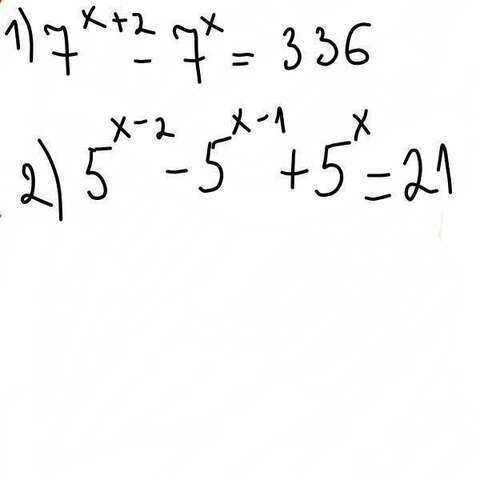 1) 7^{x+2} - 7^x = 336
2) 5^{x-2} - 5^{x-1} + 5^x = 21